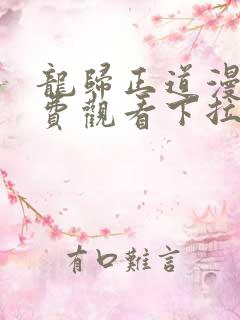 龍歸正道漫
費觀看下拉
有口難言